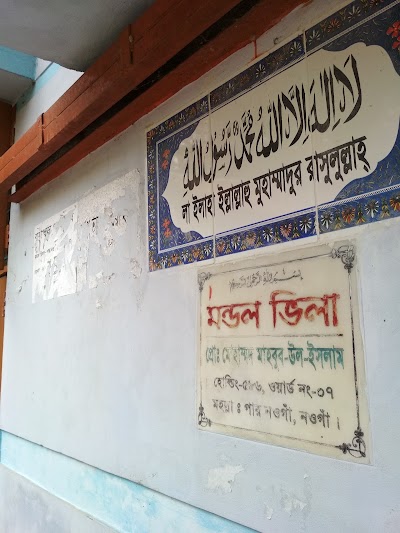 لا إله إلا الله محمد رسول الله
লা ইলাহা ইল্লাল্লাহু মুহাম্মাদুর রাসুলুল্লাহ্
মন্ডল ভিলা
প্রোঃ মোহাম্মদ মাহবুব-উল-ইসলাম
হোল্ডিং-৫৮৬, ওয়ার্ড নং-০৭
মহল্লা : পার নওগাঁ, নওগাঁ।